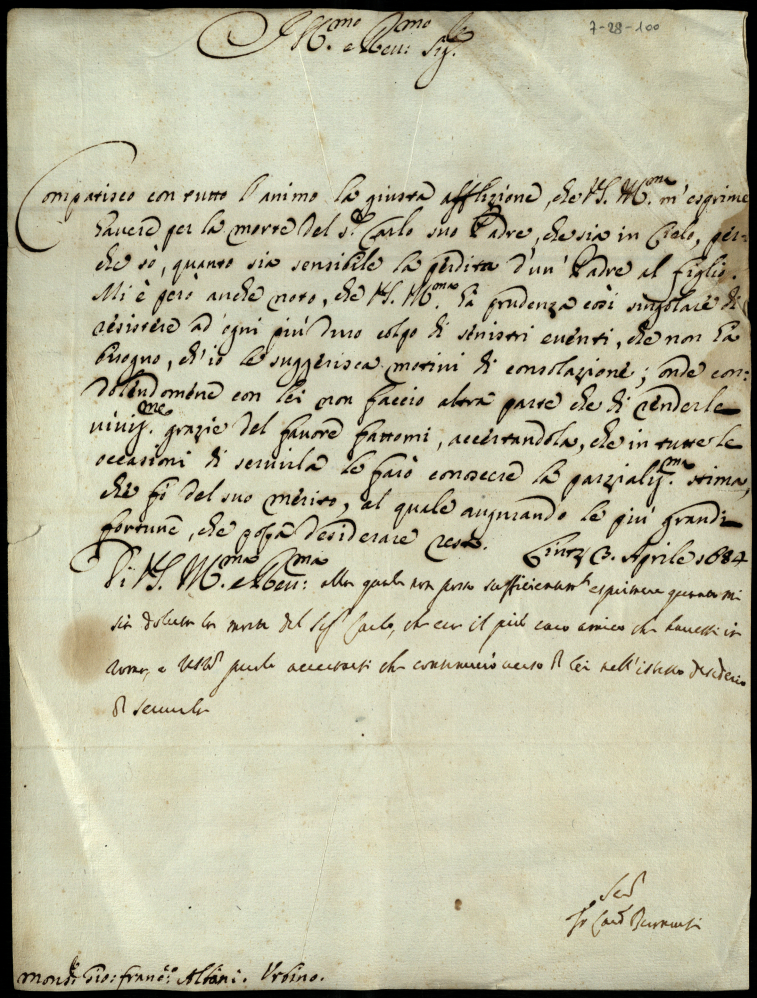 7-28-100
Ill.mo e R.mo Sig.re
Compatisco con tutto l'animo la giusta afflizione, che V.S. Ill.ma m'esprime
havere per la morte del S.r Carlo suo Padre, che sia in Cielo, per-
che sò, quanto sia sensibile la perdita d'un' Padre al figlio.
Mi è però anche noto, che V.S. Ill.ma hà prudenza così singolare di
resistere ad' ogni più duro colpo di sinistri eventi, che non hà
bisogno, ch'io le suggerisca motivi di consolazione; onde con-
dolendomene con lei non faccio altra parte che di renderle
viviss.me grazie del favore fattomi, accertandola, che in tutte le
occasioni di servirla le farò conoscere la parzialiss.ma stima,
che fò del suo merito, al quale augurando le più grandi
fortune, che possa desiderare resto. 3. Aprile 1684
Di V.S. Ill.ma e R.ma alla quale non posso sufficientem.te esprimere quanto mi
sia doluta la morte del Sig.r Carlo, che era il più caro amico che havessi in
Roma, e resto accertarsi che continuerò verso di lei nell'istesso desiderio
di servirla
Ser.
Card.
Mons.r Gio: Fran.co Albani. Urbino.